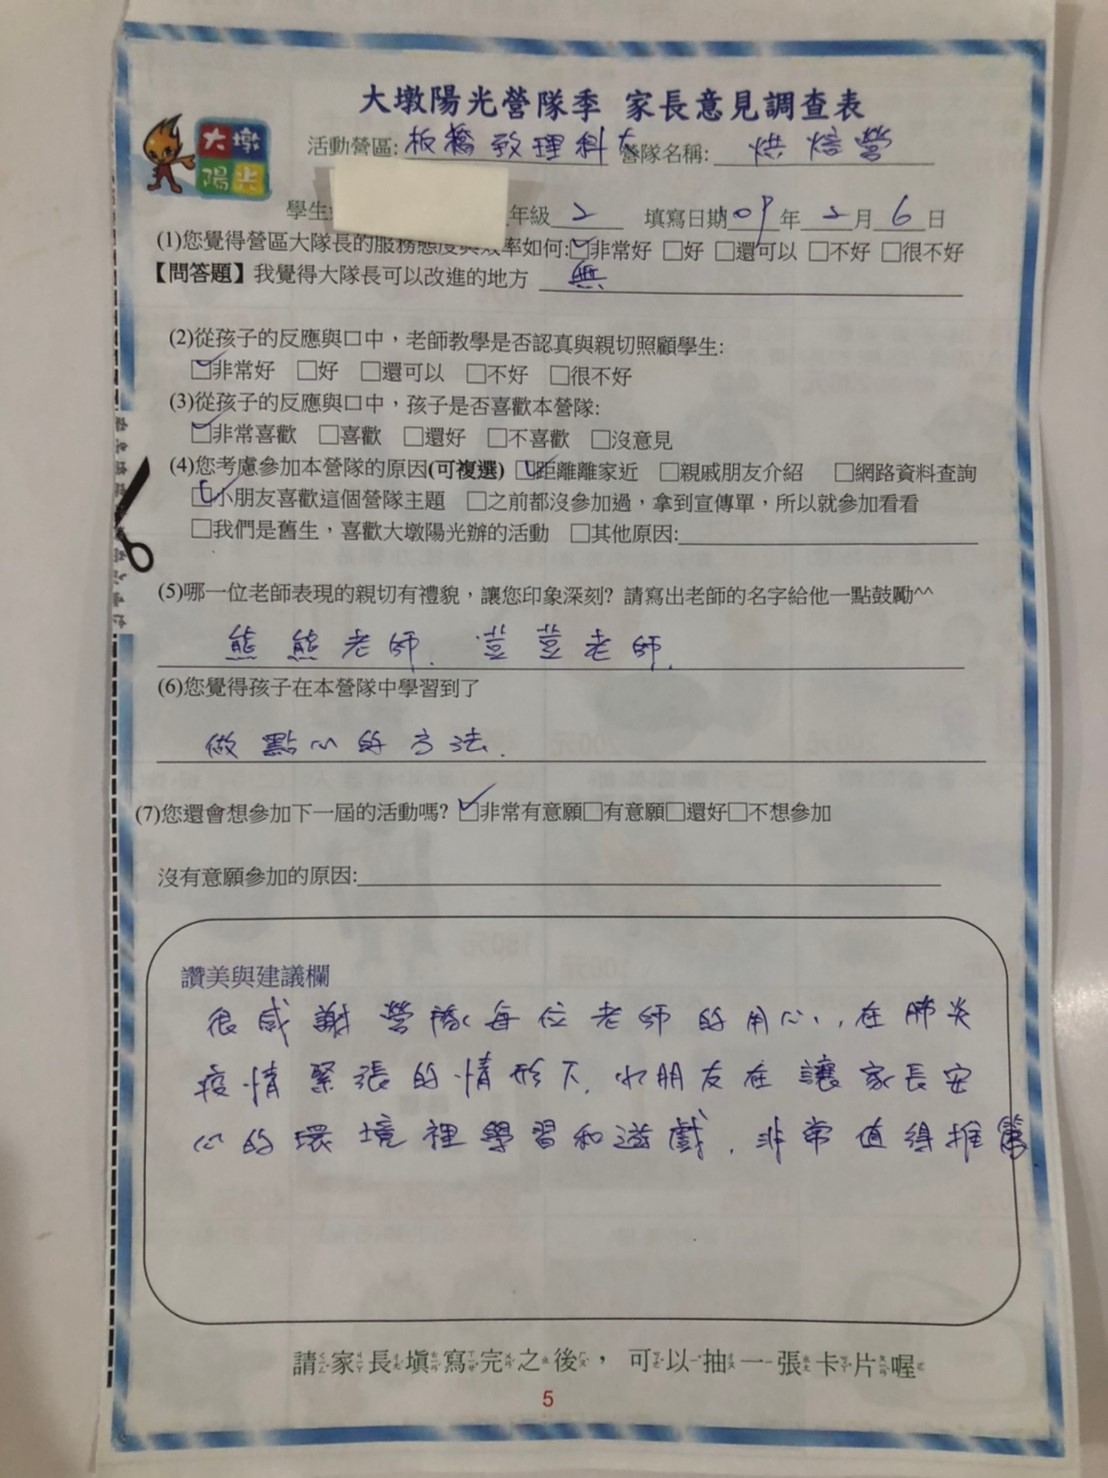 大墩陽光營隊季 家長意見調查表
大墩
陽光
活動營區:板橋致理科大營隊名稱: 烘焙營
學生 年級 2 填寫日期109年 2月 6日
(1)您覺得營區大隊長的服務態度與效率如何:☑非常好 □好 □還可以 □不好 □很不好
【問答題】我覺得大隊長可以改進的地方 無
(2)從孩子的反應與口中，老師教學是否認真與親切照顧學生:
☑非常好 □好 □還可以 □不好 □很不好
(3)從孩子的反應與口中，孩子是否喜歡本營隊:
☑非常喜歡 □喜歡 □還好 □不喜歡 □沒意見
(4)您考慮參加本營隊的原因(可複選) ☑距離離家近 □親戚朋友介紹 □網路資料查詢
☑小朋友喜歡這個營隊主題 □之前都沒參加過，拿到宣傳單，所以就參加看看
□我們是舊生，喜歡大墩陽光辦的活動 □其他原因:
(5)哪一位老師表現的親切有禮貌，讓您印象深刻? 請寫出老師的名字給他一點鼓勵^^
熊熊老師、荳荳老師.
(6)您覺得孩子在本營隊中學習到了
做點心的方法.
(7)您還會想參加下一屆的活動嗎? ☑非常有意願□有意願□還好□不想參加
沒有意願參加的原因:
讚美與建議欄
很感謝營隊每位老師的用心，在肺炎
疫情緊張的情形下，小朋友在讓家長安
心的環境裡學習和遊戲，非常值得推薦
請家長填寫完之後，可以抽一張卡片喔
5